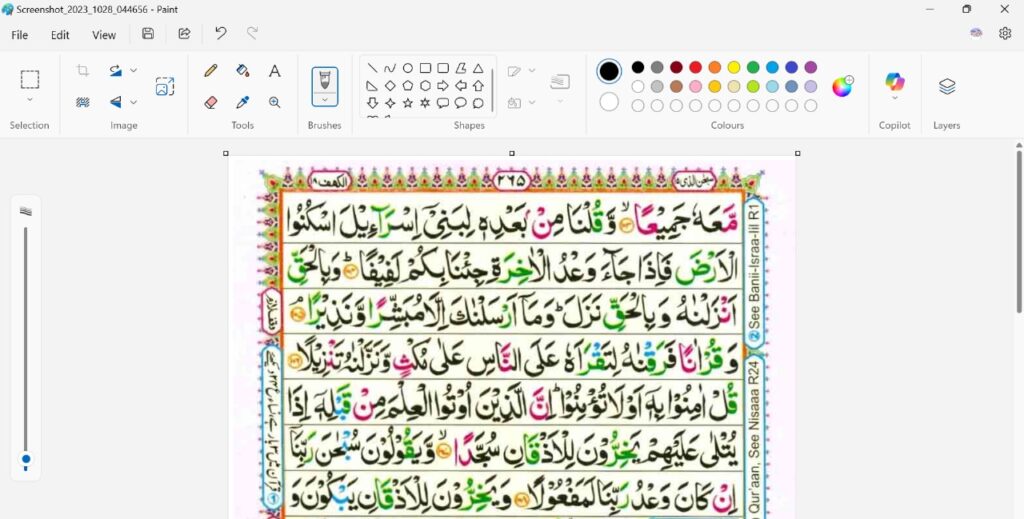 Screenshot_2023_1028_044656 - Paint
File Edit View
Selection Image Tools Brushes Shapes Colours Copilot Layers
الكهف ١٨ ٢٦٥ سبحن الذى ١٥
مَّعَهٗ جَمِيْعًا ۙ‏﴿۱۰۳﴾ وَّ قُلْنَا مِنْۢ بَعْدِهٖ لِبَنِىْٓ اِسْرَآءِيْلَ اسْكُنُوا
الْاَرْضَ فَاِذَا جَآءَ وَعْدُ الْاٰخِرَةِ جِئْنَا بِكُمْ لَفِيْفًا ؕ‏﴿۱۰۴﴾ وَبِالْحَقِّ
اَنْزَلْنٰهُ وَبِالْحَقِّ نَزَلَ ؕ وَمَاۤ اَرْسَلْنٰكَ اِلَّا مُبَشِّرًا وَّنَذِيْرًا ۘ‏﴿۱۰۵﴾
وَقُرْاٰنًا فَرَقْنٰهُ لِتَقْرَاَهٗ عَلَى النَّاسِ عَلٰى مُكْثٍ وَّنَزَّلْنٰهُ تَنْزِيْلًا‏﴿۱۰۶﴾
قُلْ اٰمِنُوْا بِهٖۤ اَوْ لَا تُؤْمِنُوْا ؕ اِنَّ الَّذِيْنَ اُوْتُوا الْعِلْمَ مِنْ قَبْلِهٖۤ اِذَا
يُتْلٰى عَلَيْهِمْ يَخِرُّوْنَ لِلْاَذْقَانِ سُجَّدًا ۙ‏﴿۱۰۷﴾ وَّيَقُوْلُوْنَ سُبْحٰنَ رَبِّنَاۤ
اِنْ كَانَ وَعْدُ رَبِّنَا لَمَفْعُوْلًا‏﴿۱۰۸﴾ وَيَخِرُّوْنَ لِلْاَذْقَانِ يَبْكُوْنَ وَ
② See Banii-Israa-iil R1
Qur'aan, See Nisaaa R24